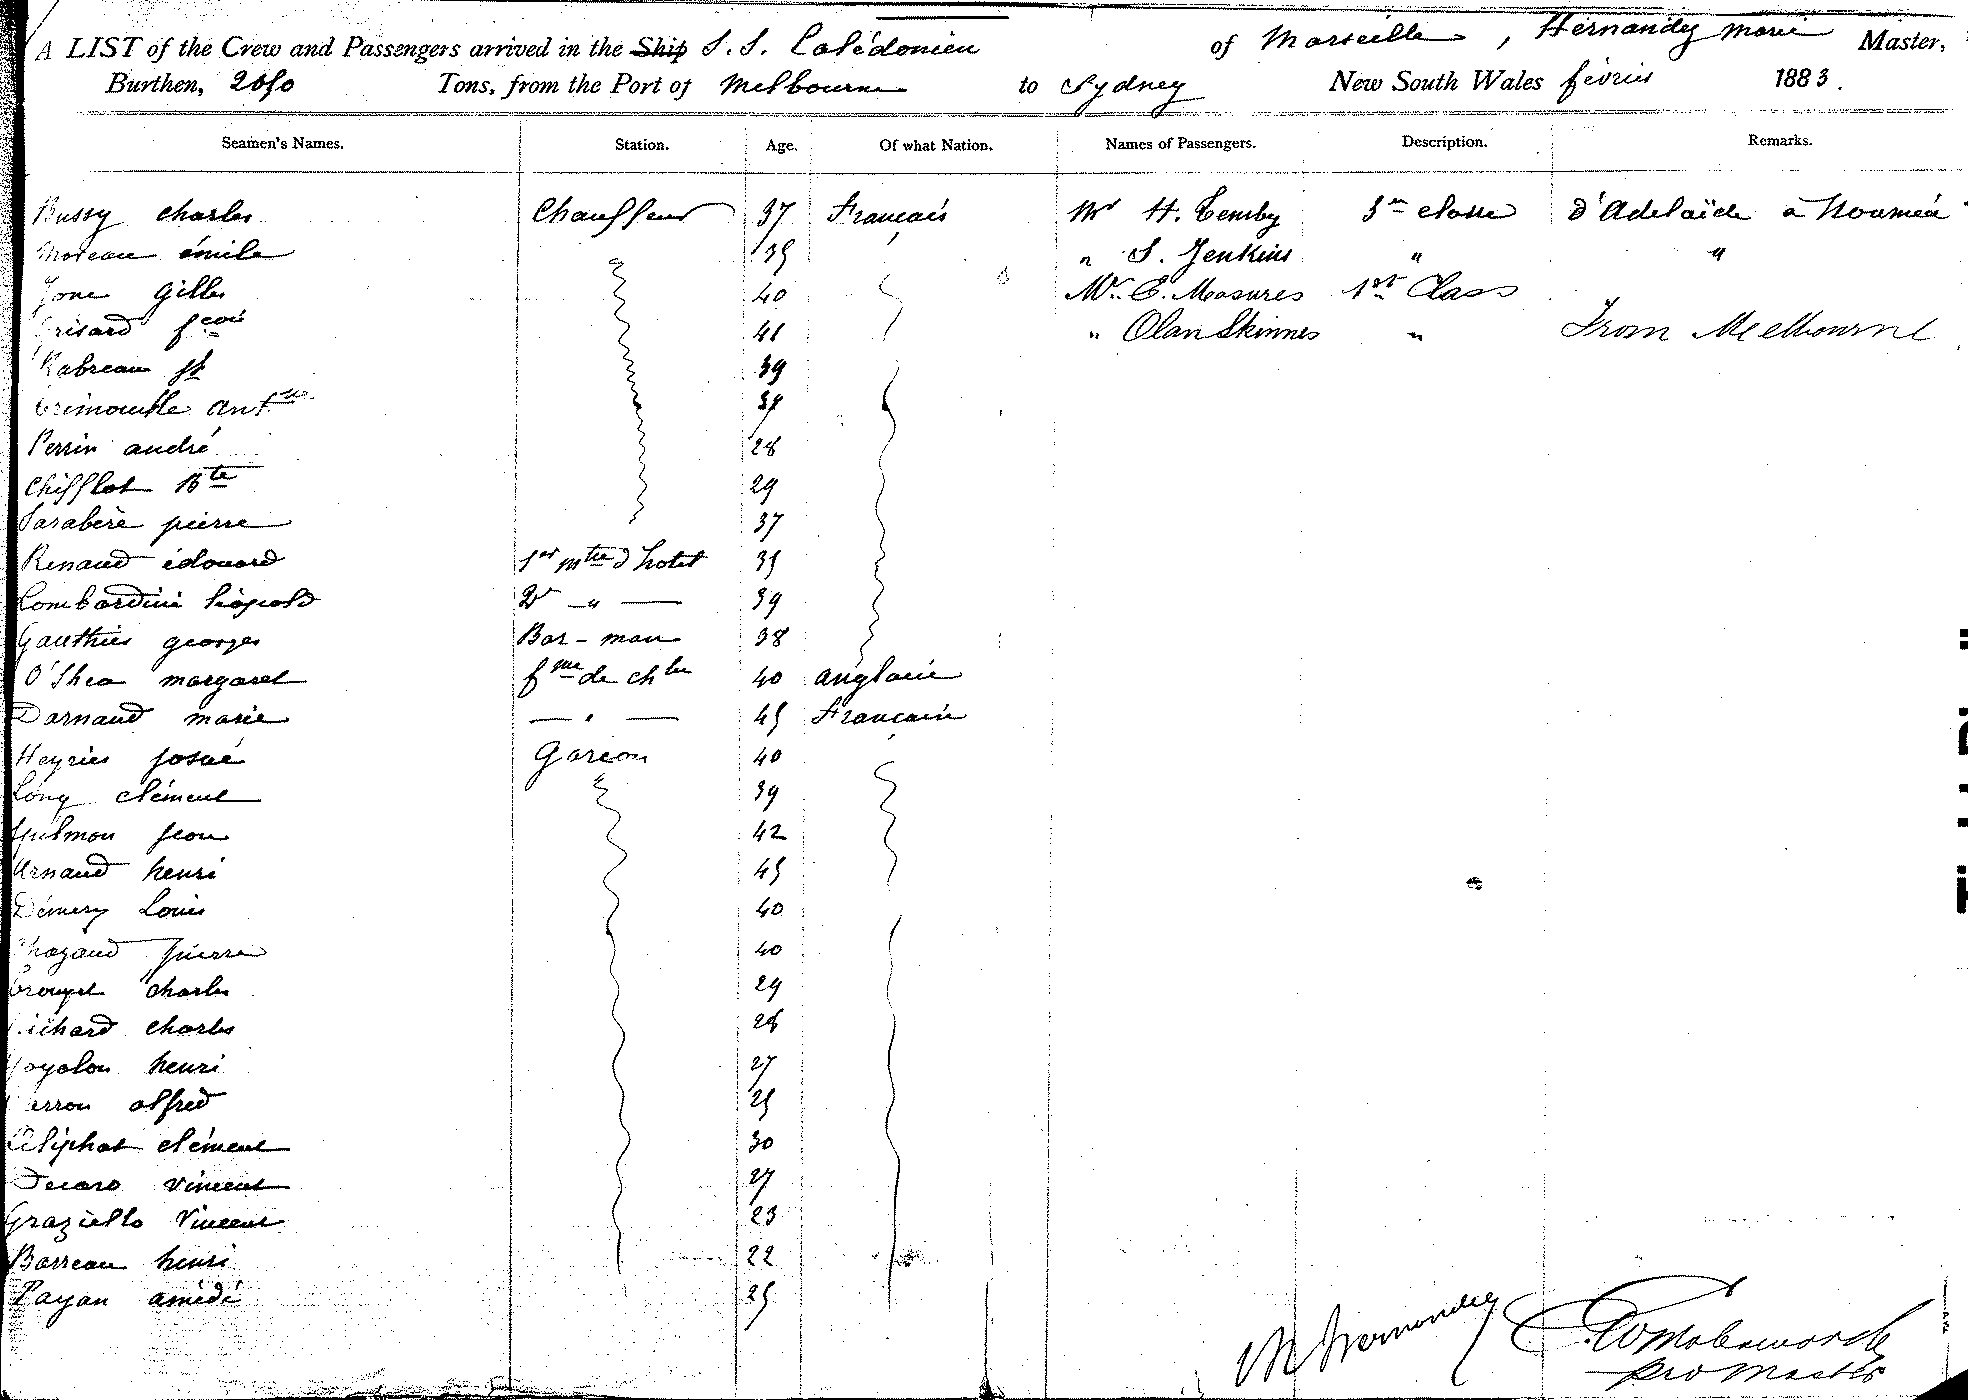 A LIST of the Crew and Passengers arrived in the Ship S. S. Calédonien of Marseille, Hernandez marie Master,
Burthen, 2050 Tons, from the Port of Melbourne to Sydney New South Wales février 1883.
Seamen's Names. Station. Age. Of what Nation. Names of Passengers. Description. Remarks.
Bussy charles Chauffeur 37 Français Mr H. Temby 3me classe d'Adelaïde à Nouméa
Moreau émile 35 " S. Jenkins " "
Gilles 40 Mr. E. Measures 1st Class
fcois 41 " Olan Skinnes " From Melbourne
Rabreau 39
antne
Perrin andré 28
Chifflot Bte 29
Sarabère pierre 37
Renaud édouard 1er mtre d'hotel 35
Lombardini léopold 2e — " — 39
Gauthier georges Bar-man 38
O'Shea margaret fme de chbre 40 anglaise
Darnaud marie — " — 45 Française
Heyriès josué Garçon 40
Long clément 39
jean 42
Arnaud henri 45
Démery Louis 40
pierre 40
charles 29
charles 28
henri 27
alfred 25
clément 30
vincent 27
Graziello Vincent 23
Barreau henri 22
Payan amédé 25
M Hernandez
pro Master